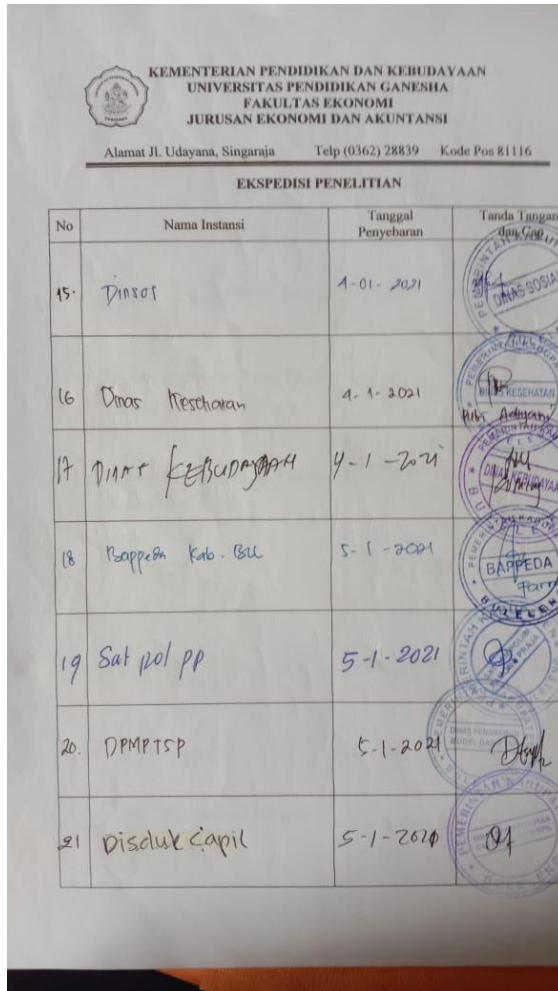 KEMENTERIAN PENDIDIKAN DAN KEBUDAYAAN
UNIVERSITAS PENDIDIKAN GANESHA
FAKULTAS EKONOMI
JURUSAN EKONOMI DAN AKUNTANSI
Alamat Jl. Udayana, Singaraja Telp (0362) 28839 Kode Pos 81116
EKSPEDISI PENELITIAN
No Nama Instansi Tanggal Penyebaran Tanda Tangan dan Cap
15. Dinsos 4-01-2021 DINAS SOSIA
16 Dinas Kesehatan 4-1-2021 KESEHATAN
17 DINAS KEBUDAYAAH 4-1-2021
18 Bappeda Kab. BU 5-1-2021 BAPPEDA
19 Sat pol pp 5-1-2021
20. DPMPTSP 5-1-2021
21 Disduk capil 5-1-2020